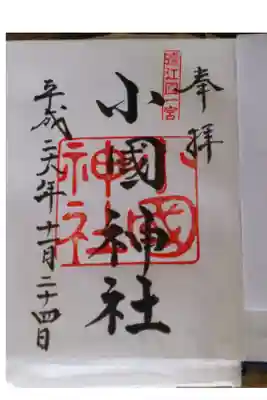 奉拝
遠江国一宮
小國神社
小國神社
平成二六年十一月二十四日